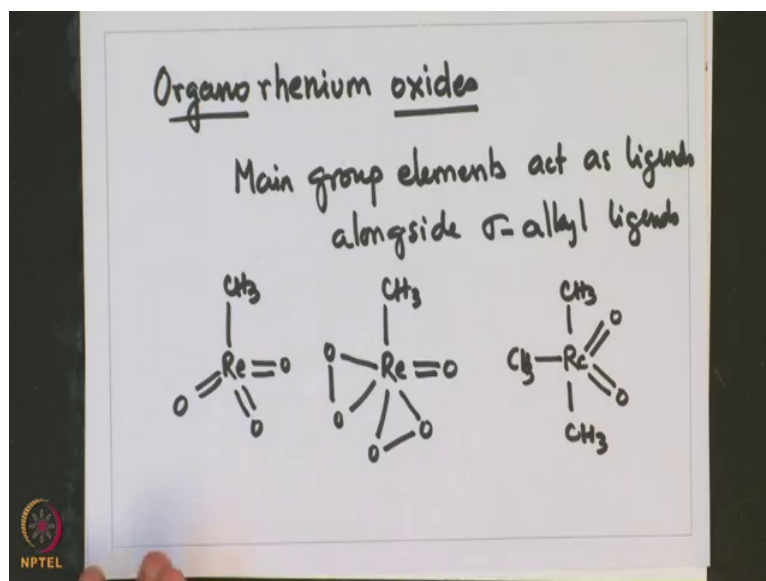 Organorhenium oxides
Main group elements act as ligands
alongside σ-alkyl ligands
CH3 CH3 CH3
Re=O O Re=O CH3-Re O
O O O O O O CH3
NPTEL